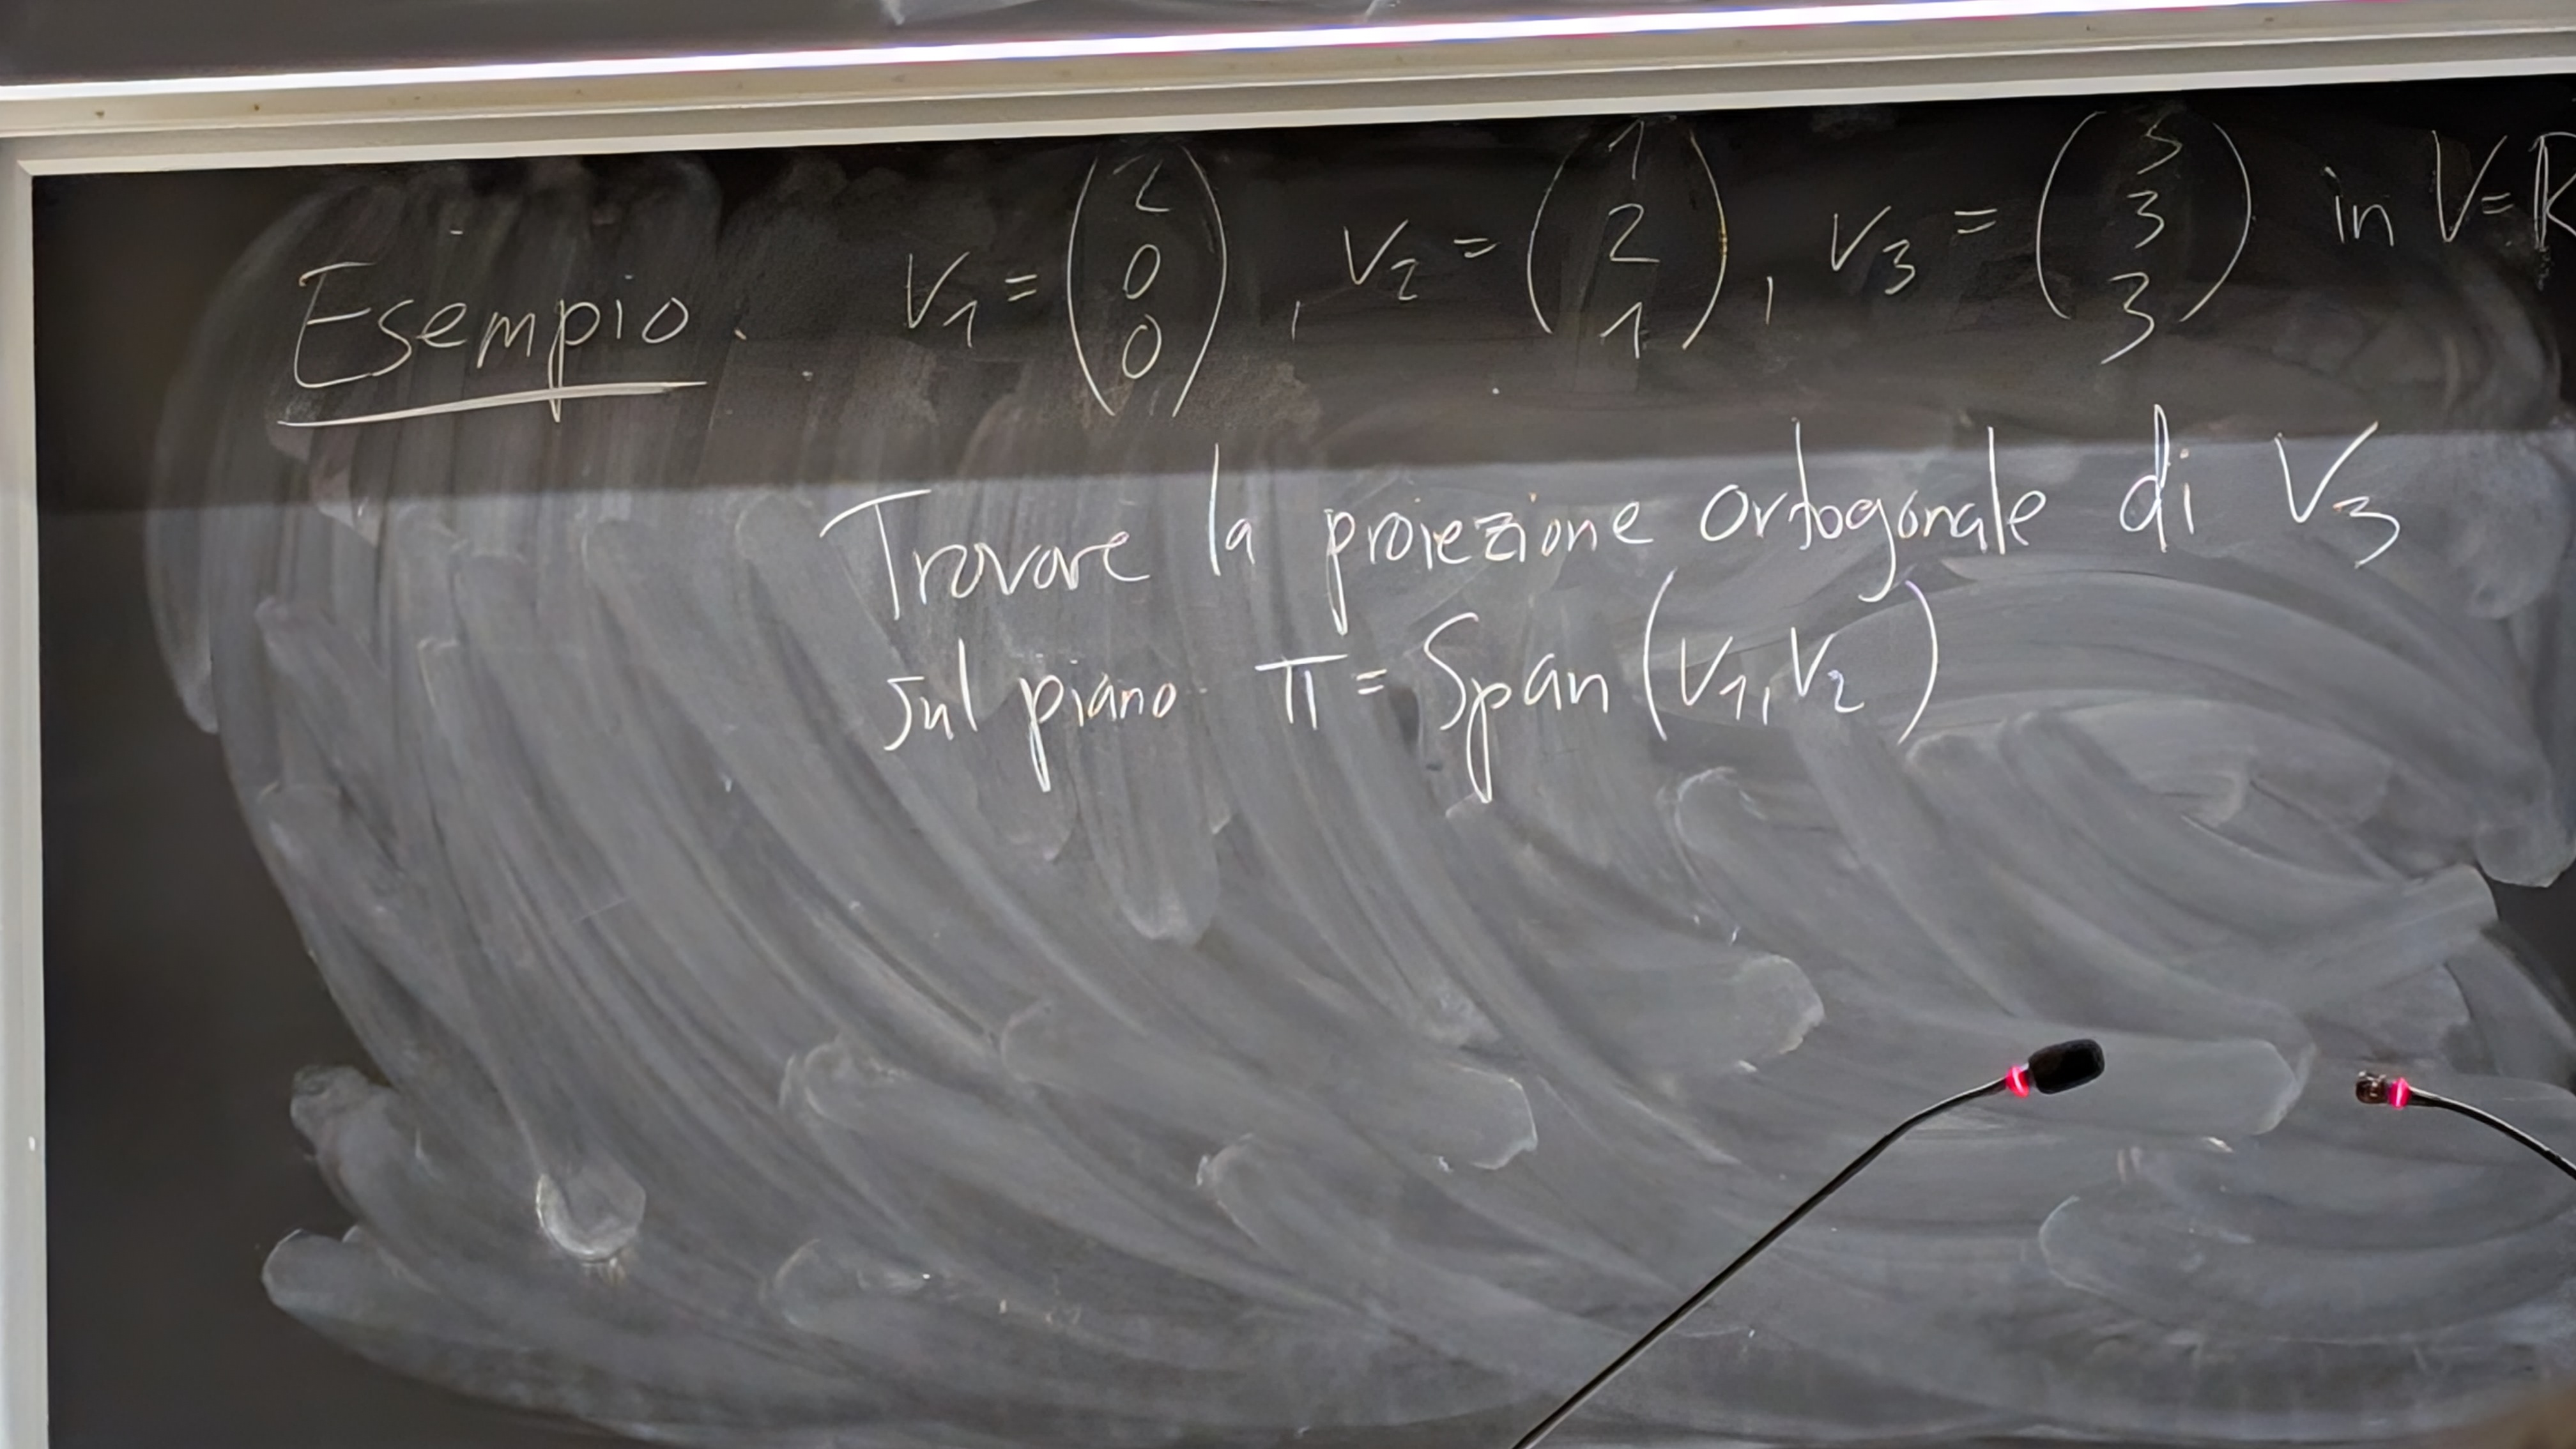 Esempio. V₁ = (2 0 0), V₂ = (1 2 1), V₃ = (3 3 3) in V=R
Trovare la proiezione ortogonale di V₃
sul piano π = Span(V₁, V₂)